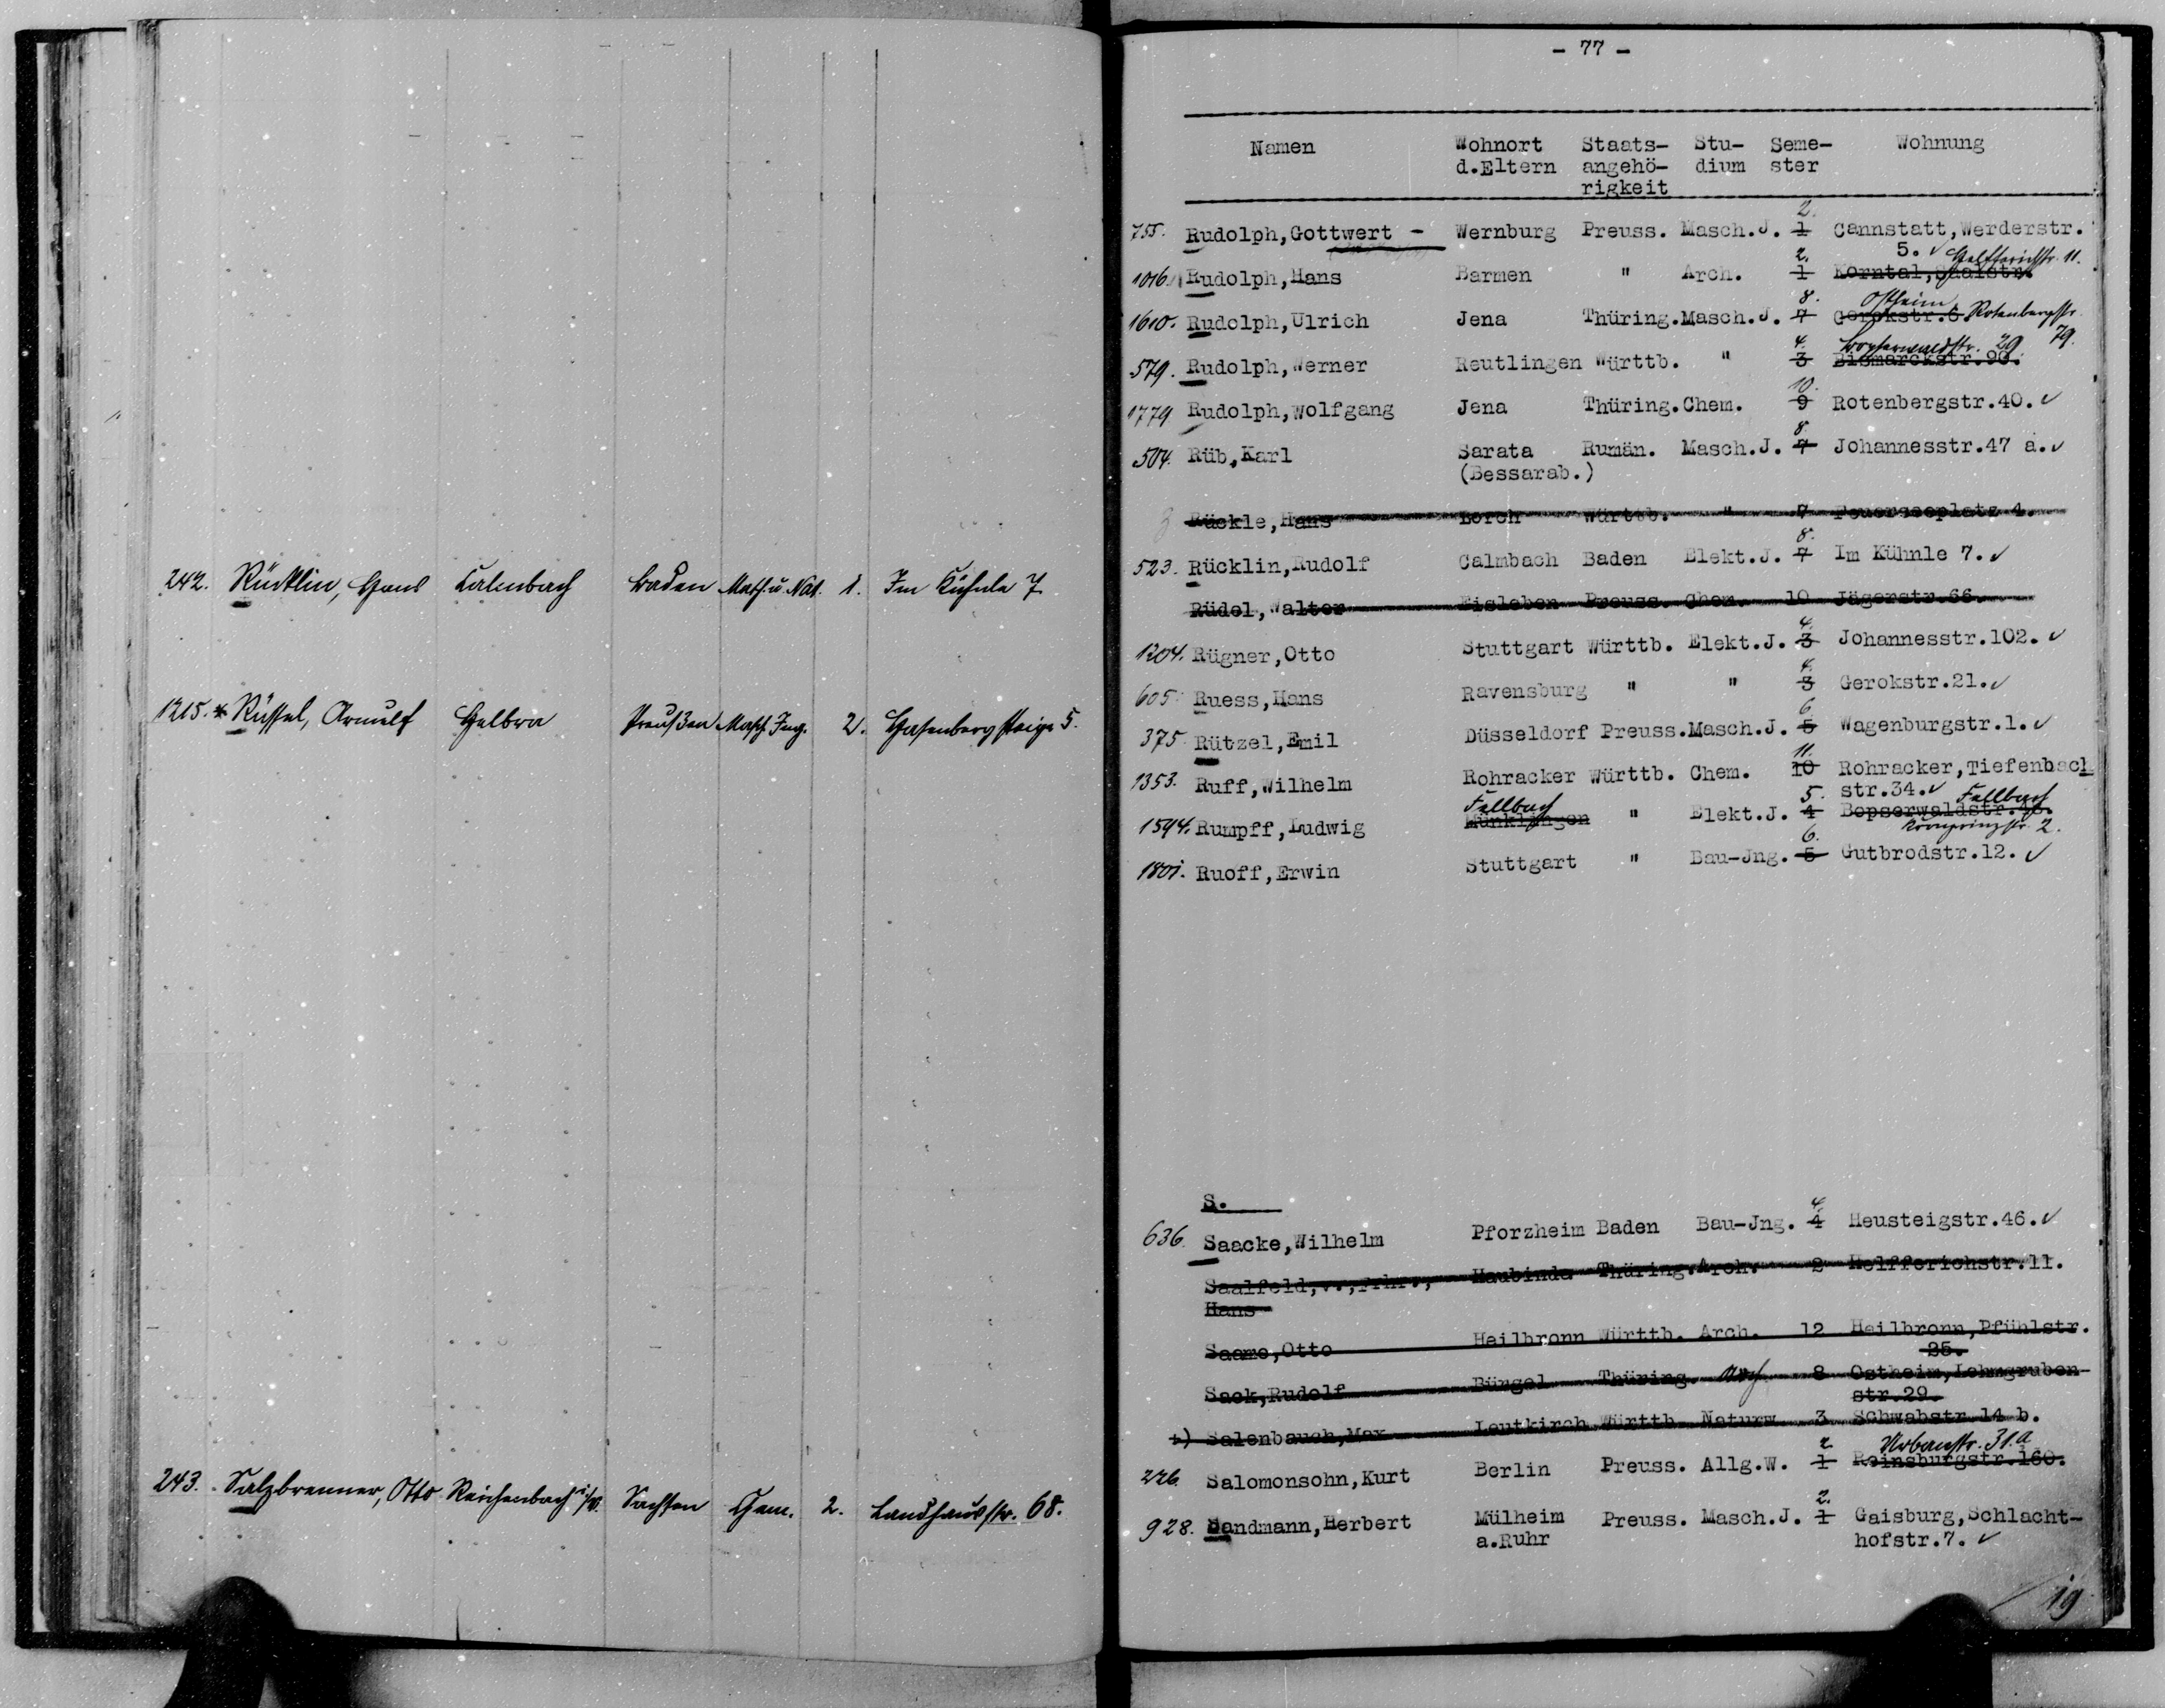 242. Rücklin, Hans Calmbach Baden Math. u. Nat. 1. Im Kühnle 7
1215. * Rüssel, Arnulf Helbra Preußen Masch. Ing. 2. Hasenbergsteige 5.
243. Salzbrenner, Otto Reichenbach i/V. Sachsen Chem. 2. Landhausstr. 68.
- 77 -
Namen Wohnort Staats- Stu- Seme- Wohnung
d.Eltern angehö- dium ster
rigkeit
2.
755. Rudolph,Gottwert - Wernburg Preuss. Masch.J. 1 Cannstatt,Werderstr.
2. 5. ✓ Helfferichstr. 11.
1016. Rudolph,Hans Barmen " Arch. 1 Korntal,Saalstr.
8. Ostheim
1610. Rudolph,Ulrich Jena Thüring.Masch.J. 7 Gerokstr.6. Rotenbergstr.
4. Bopserwaldstr. 29 79.
579. Rudolph,Werner Reutlingen Württb. " 3 Bismarckstr.90.
10.
1779 Rudolph,Wolfgang Jena Thüring.Chem. 9 Rotenbergstr.40. ✓
8.
504. Rüb,Karl Sarata Rumän. Masch.J. 7 Johannesstr.47 a. ✓
(Bessarab.)
Rückle,Hans Lorch Württb. " 7 Feuerseeplatz 4.
8.
523. Rücklin,Rudolf Calmbach Baden Elekt.J. 7 Im Kühnle 7. ✓
Rüdel,Walter Eisleben Preuss. Chem. 10 Jägerstr.66.
4.
1204. Rügner,Otto Stuttgart Württb. Elekt.J. 3 Johannesstr.102. ✓
4.
605. Ruess,Hans Ravensburg " " 3 Gerokstr.21. ✓
6
375. Rützel,Emil Düsseldorf Preuss.Masch.J. 5 Wagenburgstr.1. ✓
11.
1353. Ruff,Wilhelm Rohracker Württb. Chem. 10 Rohracker,Tiefenbach
str.34. ✓
Fellbach 5. Fellbach
1594. Rumpff,Ludwig Münklingen " Elekt.J. 4 Bopserwaldstr.
6. Kronprinzstr. 2.
1801. Ruoff,Erwin Stuttgart " Bau-Jng. 5 Gutbrodstr.12. ✓
S.
4.
636. Saacke,Wilhelm Pforzheim Baden Bau-Jng. 4 Heusteigstr.46. ✓
Saalfeld,v.,Frhr., Haubinda Thüring.Arch. 2 Helfferichstr.11.
Hans
Saame,Otto Heilbronn Württb. Arch. 12 Heilbronn,Pfühlstr.
25.
Sack,Rudolf Bürgel Thüring. Arch 8 Ostheim,Lehmgruben-
str.29.
+) Salenbauch,Max Leutkirch Württb. Naturw. 3 Schwabstr.14 b.
2 Urbanstr. 31.a
226. Salomonsohn,Kurt Berlin Preuss. Allg.W. 1 Reinsburgstr.160.
2.
928. Sandmann,Herbert Mülheim Preuss. Masch.J. 1 Gaisburg,Schlacht-
a.Ruhr hofstr.7. ✓
19